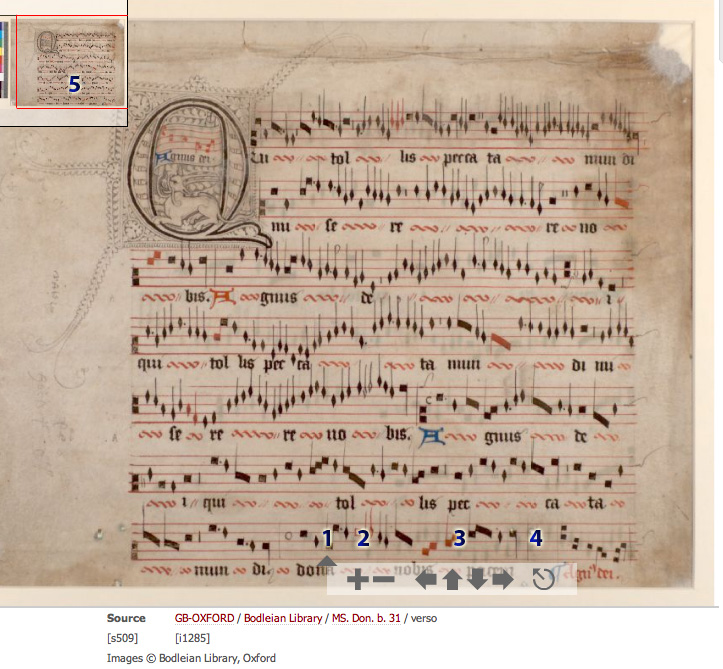 5
Agnus dei
Qu i tol lis pecca ta mun di
mi se re re no
bis. A gnus de
i
qui tol lis pec ca ta mun di mi
se re re no bis. A gnus de
i qui tol lis pec ca ta
mun di. dona nobis pacem Agn' dei.
C
1 2 3 4
Source GB-OXFORD / Bodleian Library / MS. Don. b. 31 / verso
[s509] [i1285]
Images © Bodleian Library, Oxford